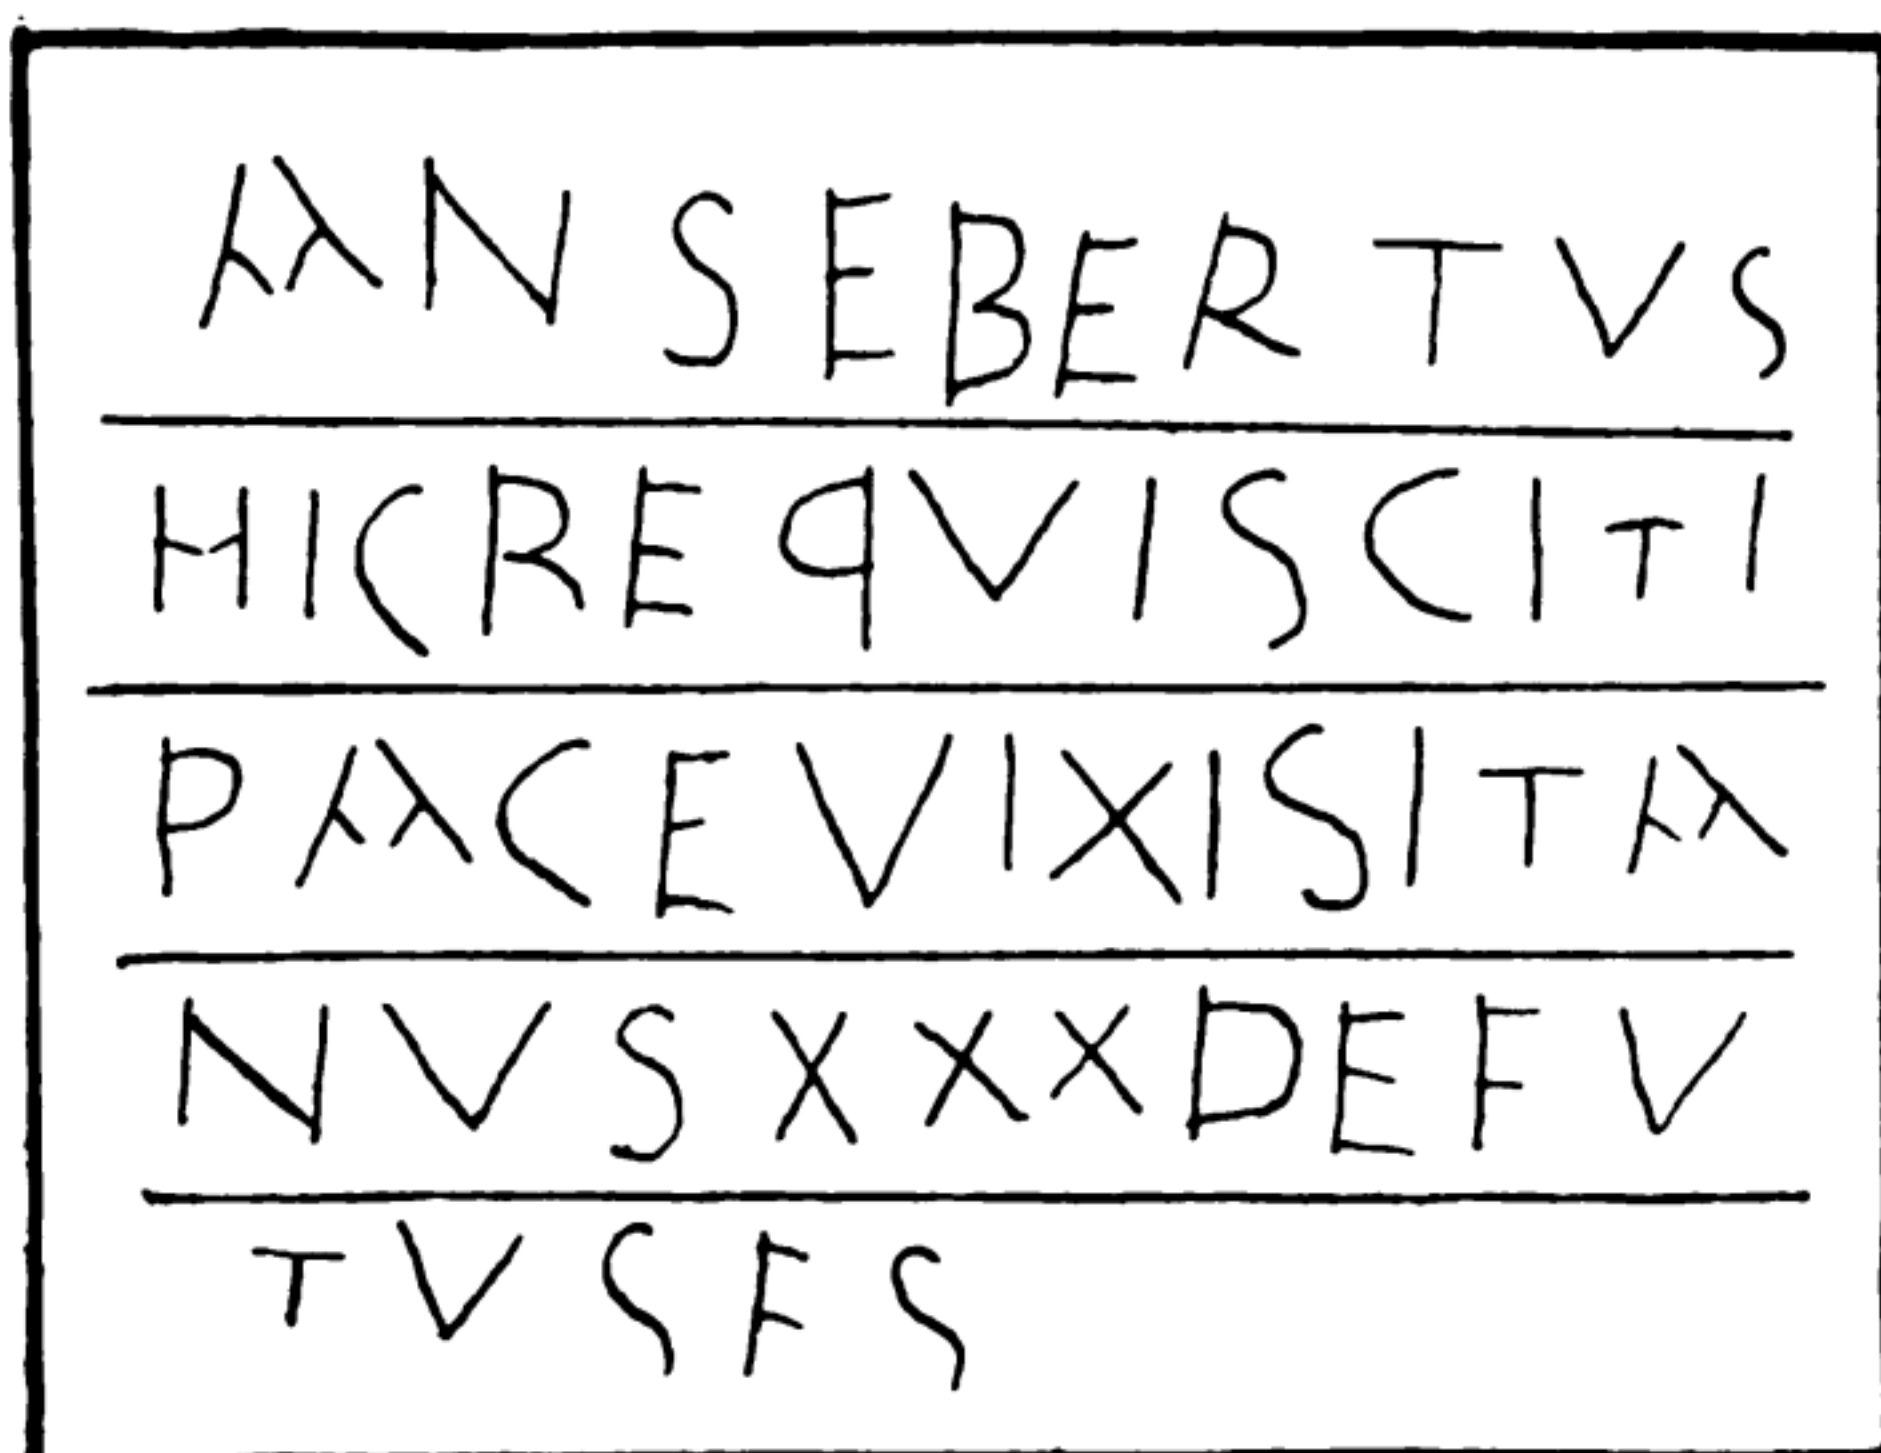 ANSEBERTVS
HICREQVISCITI
PACEVIXISITA
NVSXXXDEFV
TVSFS